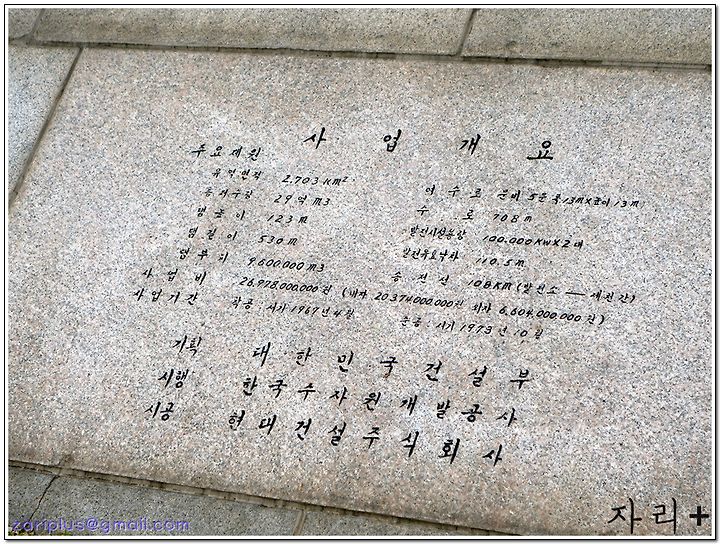 사업개요
주요제원
유역면적 2.703 KM²
총저수량 29억 M3
댐높이 123 M
댐길이 530 M
댐부피 9.600.000 M3
여수로 문비 5문 폭13M×높이 13M
수로 708 M
발전시설용량 100.000KW×2대
발전유효낙차 110.5M
송전선 108KM (발전소 — 세천간)
사업비 26.978.000.000원 (내자 20.374.000.000원 외자 6.604.000.000원)
사업기간 착공 : 서기 1967년 4월 준공 : 서기 1973년 10월
기획 대한민국건설부
시행 한국수자원개발공사
시공 현대건설주식회사
zariplus@gmail.com
자리+